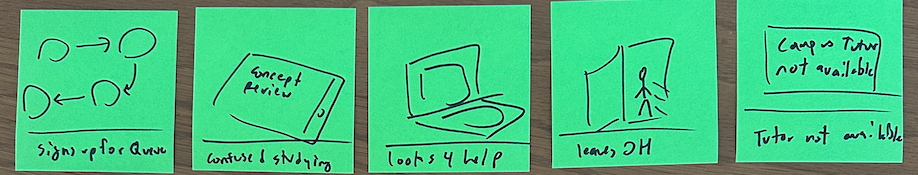 Signs up for Queue
Concept
Review
confused studying
looks 4 help
leaves OH
Campus Tutor
not available
Tutor not available